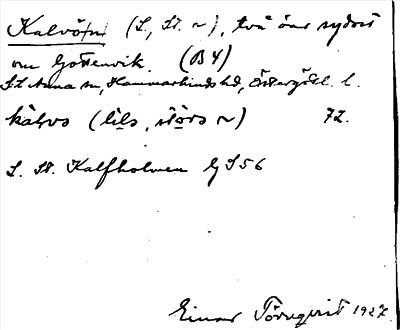 Kalvö/n/ (L., St. ~), två öar sydost
om Gottenvik. (B4)
S:t Anna sn, Hammarkinds hd, Östergötl. l.
kạlvə (lịlə, stọrə ~) 72.
L. St. Kalfholmen GS 56
Einar Törnqvist 1927.